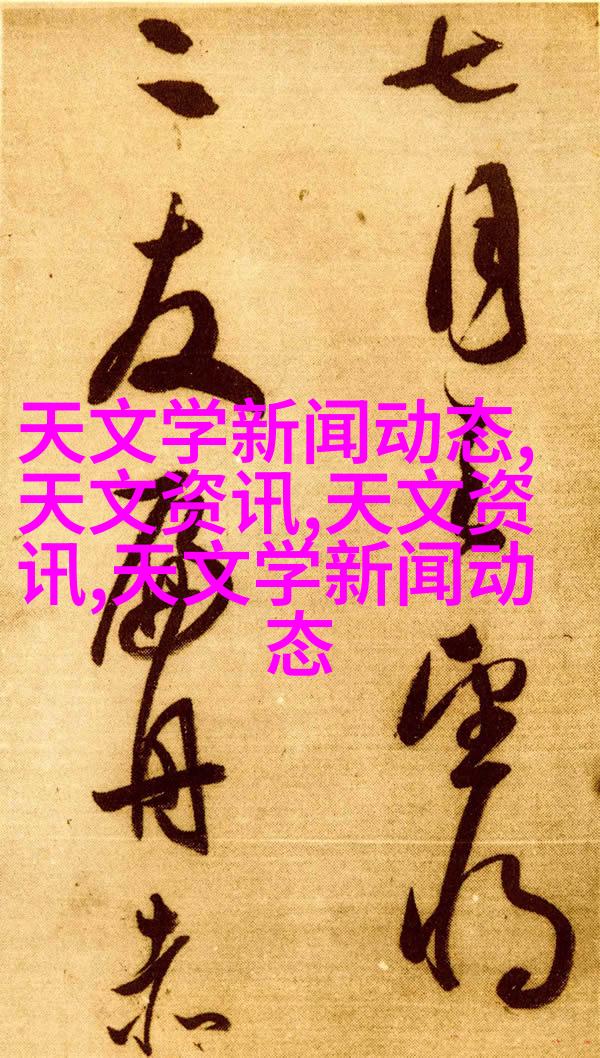 七月望将
二友舟赤
天文学新闻动态,
天文资讯,天文资
讯,天文学新闻动
态